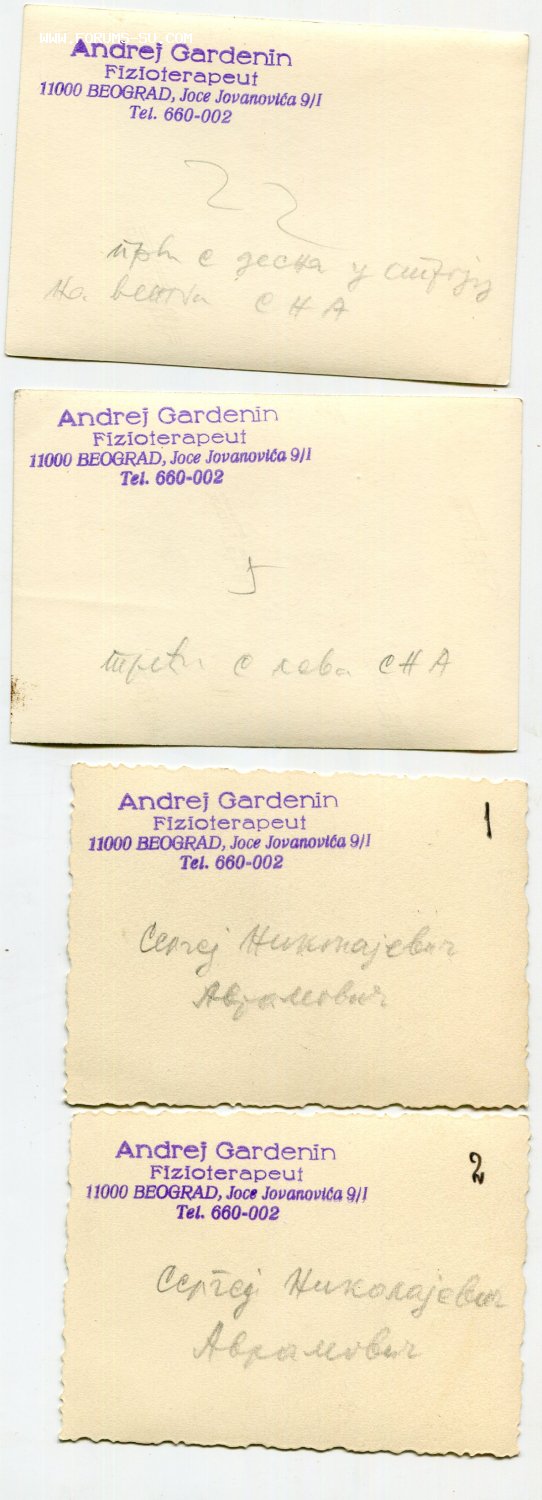 WWW.FORUMS-SU.COM
Andrej Gardenin
Fizioterapeut
11000 BEOGRAD, Joce Jovanovića 9/I
Tel. 660-002
22
први с десна у строју
на вежби СНА
Andrej Gardenin
Fizioterapeut
11000 BEOGRAD, Joce Jovanovića 9/I
Tel. 660-002
5
трећи с лева СНА
Andrej Gardenin
Fizioterapeut
11000 BEOGRAD, Joce Jovanovića 9/I
Tel. 660-002
1
Сергеј Николајевич
Аврамович
Andrej Gardenin
Fizioterapeut
11000 BEOGRAD, Joce Jovanovića 9/I
Tel. 660-002
2
Сергеј Николајевич
Аврамович